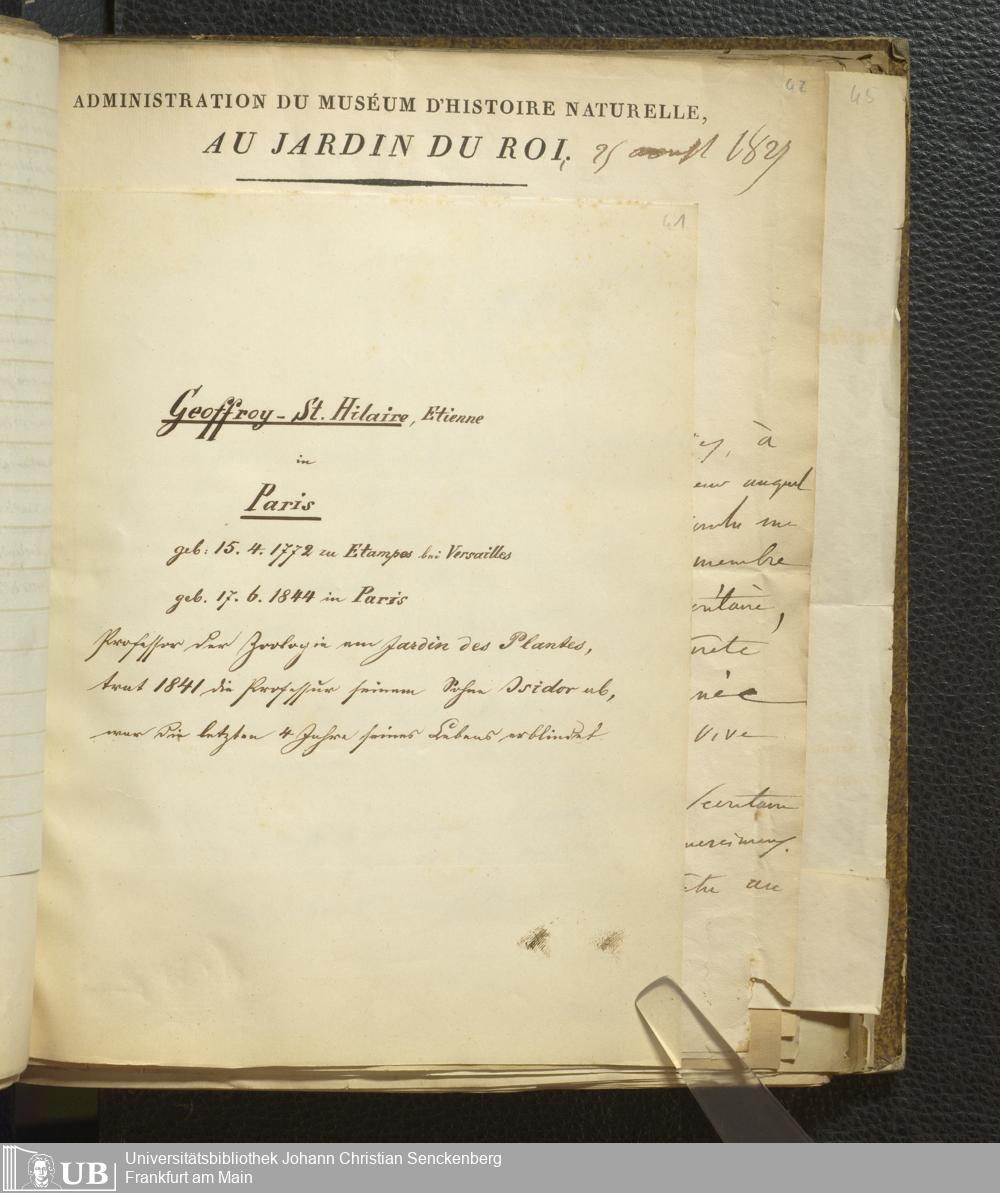 ADMINISTRATION DU MUSÉUM D'HISTOIRE NATURELLE,
AU JARDIN DU ROI, 25 aoust 182
42
45
41
Geoffroy - St. Hilaire, Etienne
in
Paris
geb: 15. 4. 1772 zu Etampes bei Versailles
geb. 17. 6. 1844 in Paris
Professor der Zoologie am Jardin des Plantes,
trat 1841 die Professur seinem Sohne Isidor ab,
war die letzten 4 Jahre seines Lebens erblindet
à
auquel
me
membre
née
vive
UB
Universitätsbibliothek Johann Christian Senckenberg
Frankfurt am Main